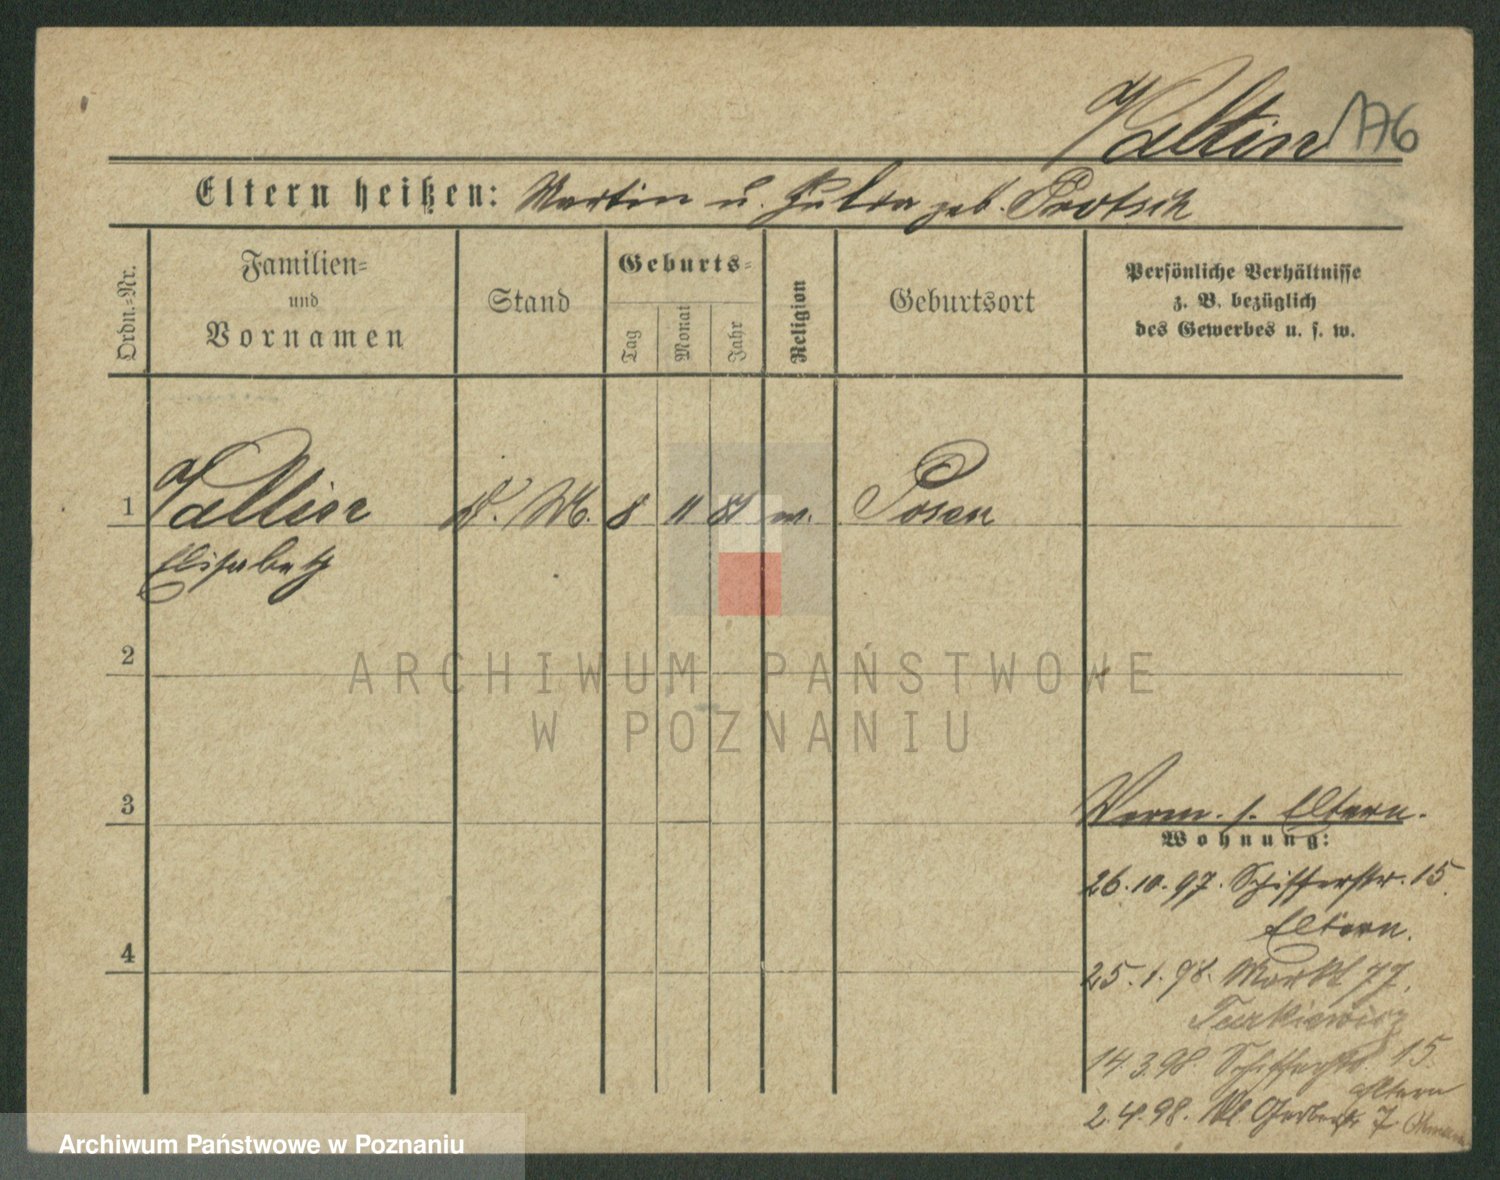 Valtin 176
Eltern heißen: Martin u. Julia geb. Protsch
Ordn.-Nr.
Familien-
und
Vornamen
Stand
Geburts-
Tag
Monat
Jahr
Religion
Geburtsort
Persönliche Verhältnisse
z. B. bezüglich
des Gewerbes u. s. w.
1 Valtin D. M. 8 11 81 Posen
Elisabeth
2
ARCHIWUM PAŃSTWOWE
W POZNANIU
3
Verm. s. Eltern.
Wohnung:
26.10.97. Schifferstr. 15
Eltern.
4
25.1.98. Markt 77.
Turkiewicz
14.3.98. Schifferstr. 15.
Eltern
2.4.98. Kl. Gerberstr. 7
Archiwum Państwowe w Poznaniu